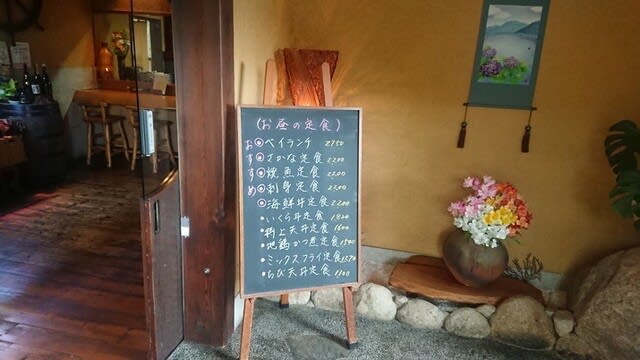 (お昼の定食)
おすすめ
◉ベイランチ 2750
◉さかな定食 2200
◉焼魚定食 2200
◉刺身定食 2200
◉海鮮丼定食 2200
・いくら丼定食
・特上天丼定食 1600
・地鶏かつ煮定食
・ミックスフライ定食
・ちび天丼定食